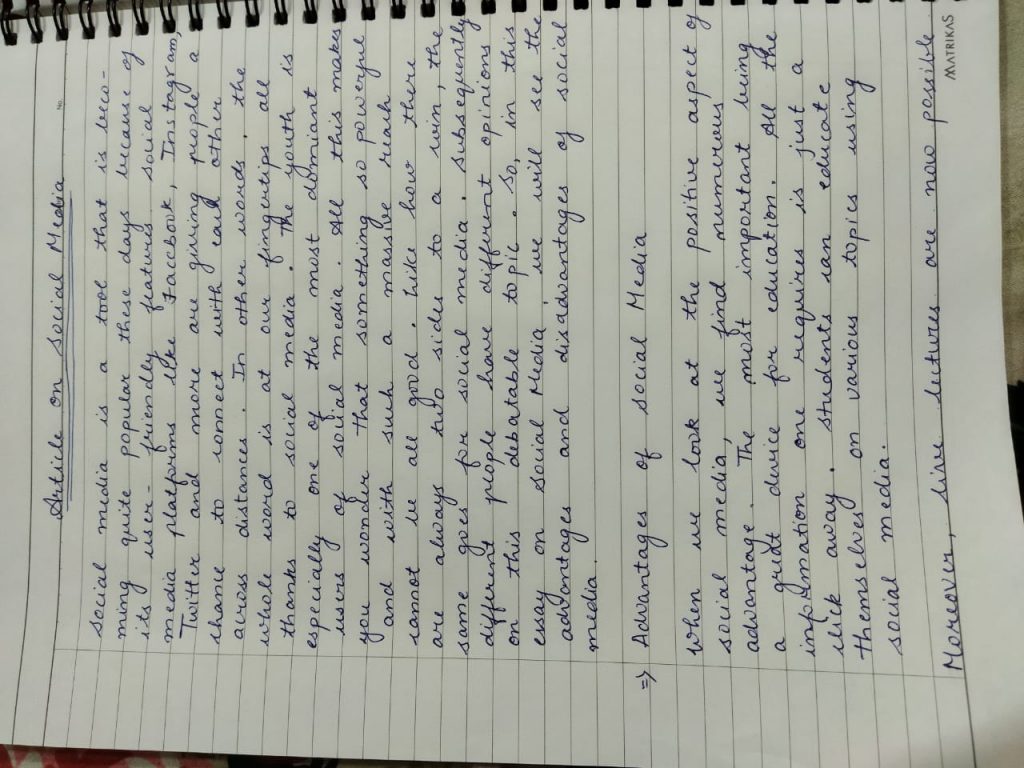 Article on social Media
social media is a tool that is beco-
ming quite popular these days because of
its user-friendly features. social
media platforms like Facebook, Instagram,
Twitter and more are giving people a
chance to connect with each other
across distances. In other words, the
whole word is at our fingertips all
thanks to social media. the youth is
especially one of the most domiant
users of social media. All this makes
you wonder that something so powerful
and with such a massive reach
cannot be all good. Like how there
are always two sides to a coin, the
same goes for social media. subsequently
different people have different opinions
on this debatable topic. so, in this
essay on social Media, we will see the
advantages and disadvantages of social
media.
=> Advantages of social Media
when we look at the positive aspect of
social media, we find numerous
advantage. The most important being
a great device for education. All the
information one requires is just a
click away. students can educate
themselves on various topics using
social media.
Moreover, live lectures are now possible
MATRIKAS